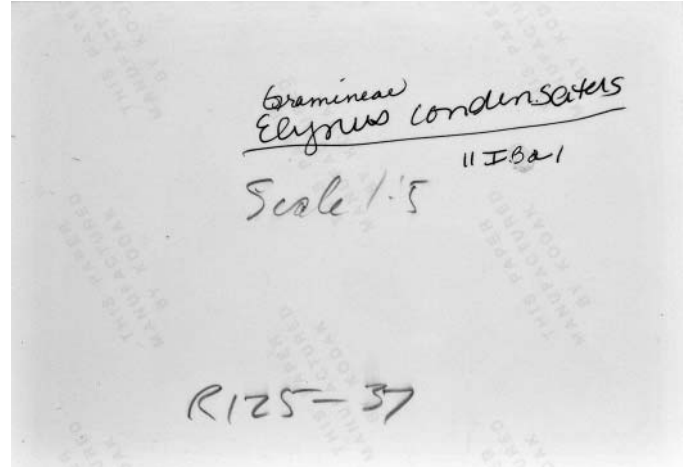 Gramineae
Elymus condensatus
11 I.Ba1
Scale 1:5
R125-37
THIS PAPER
MANUFACTURED
BY KODAK